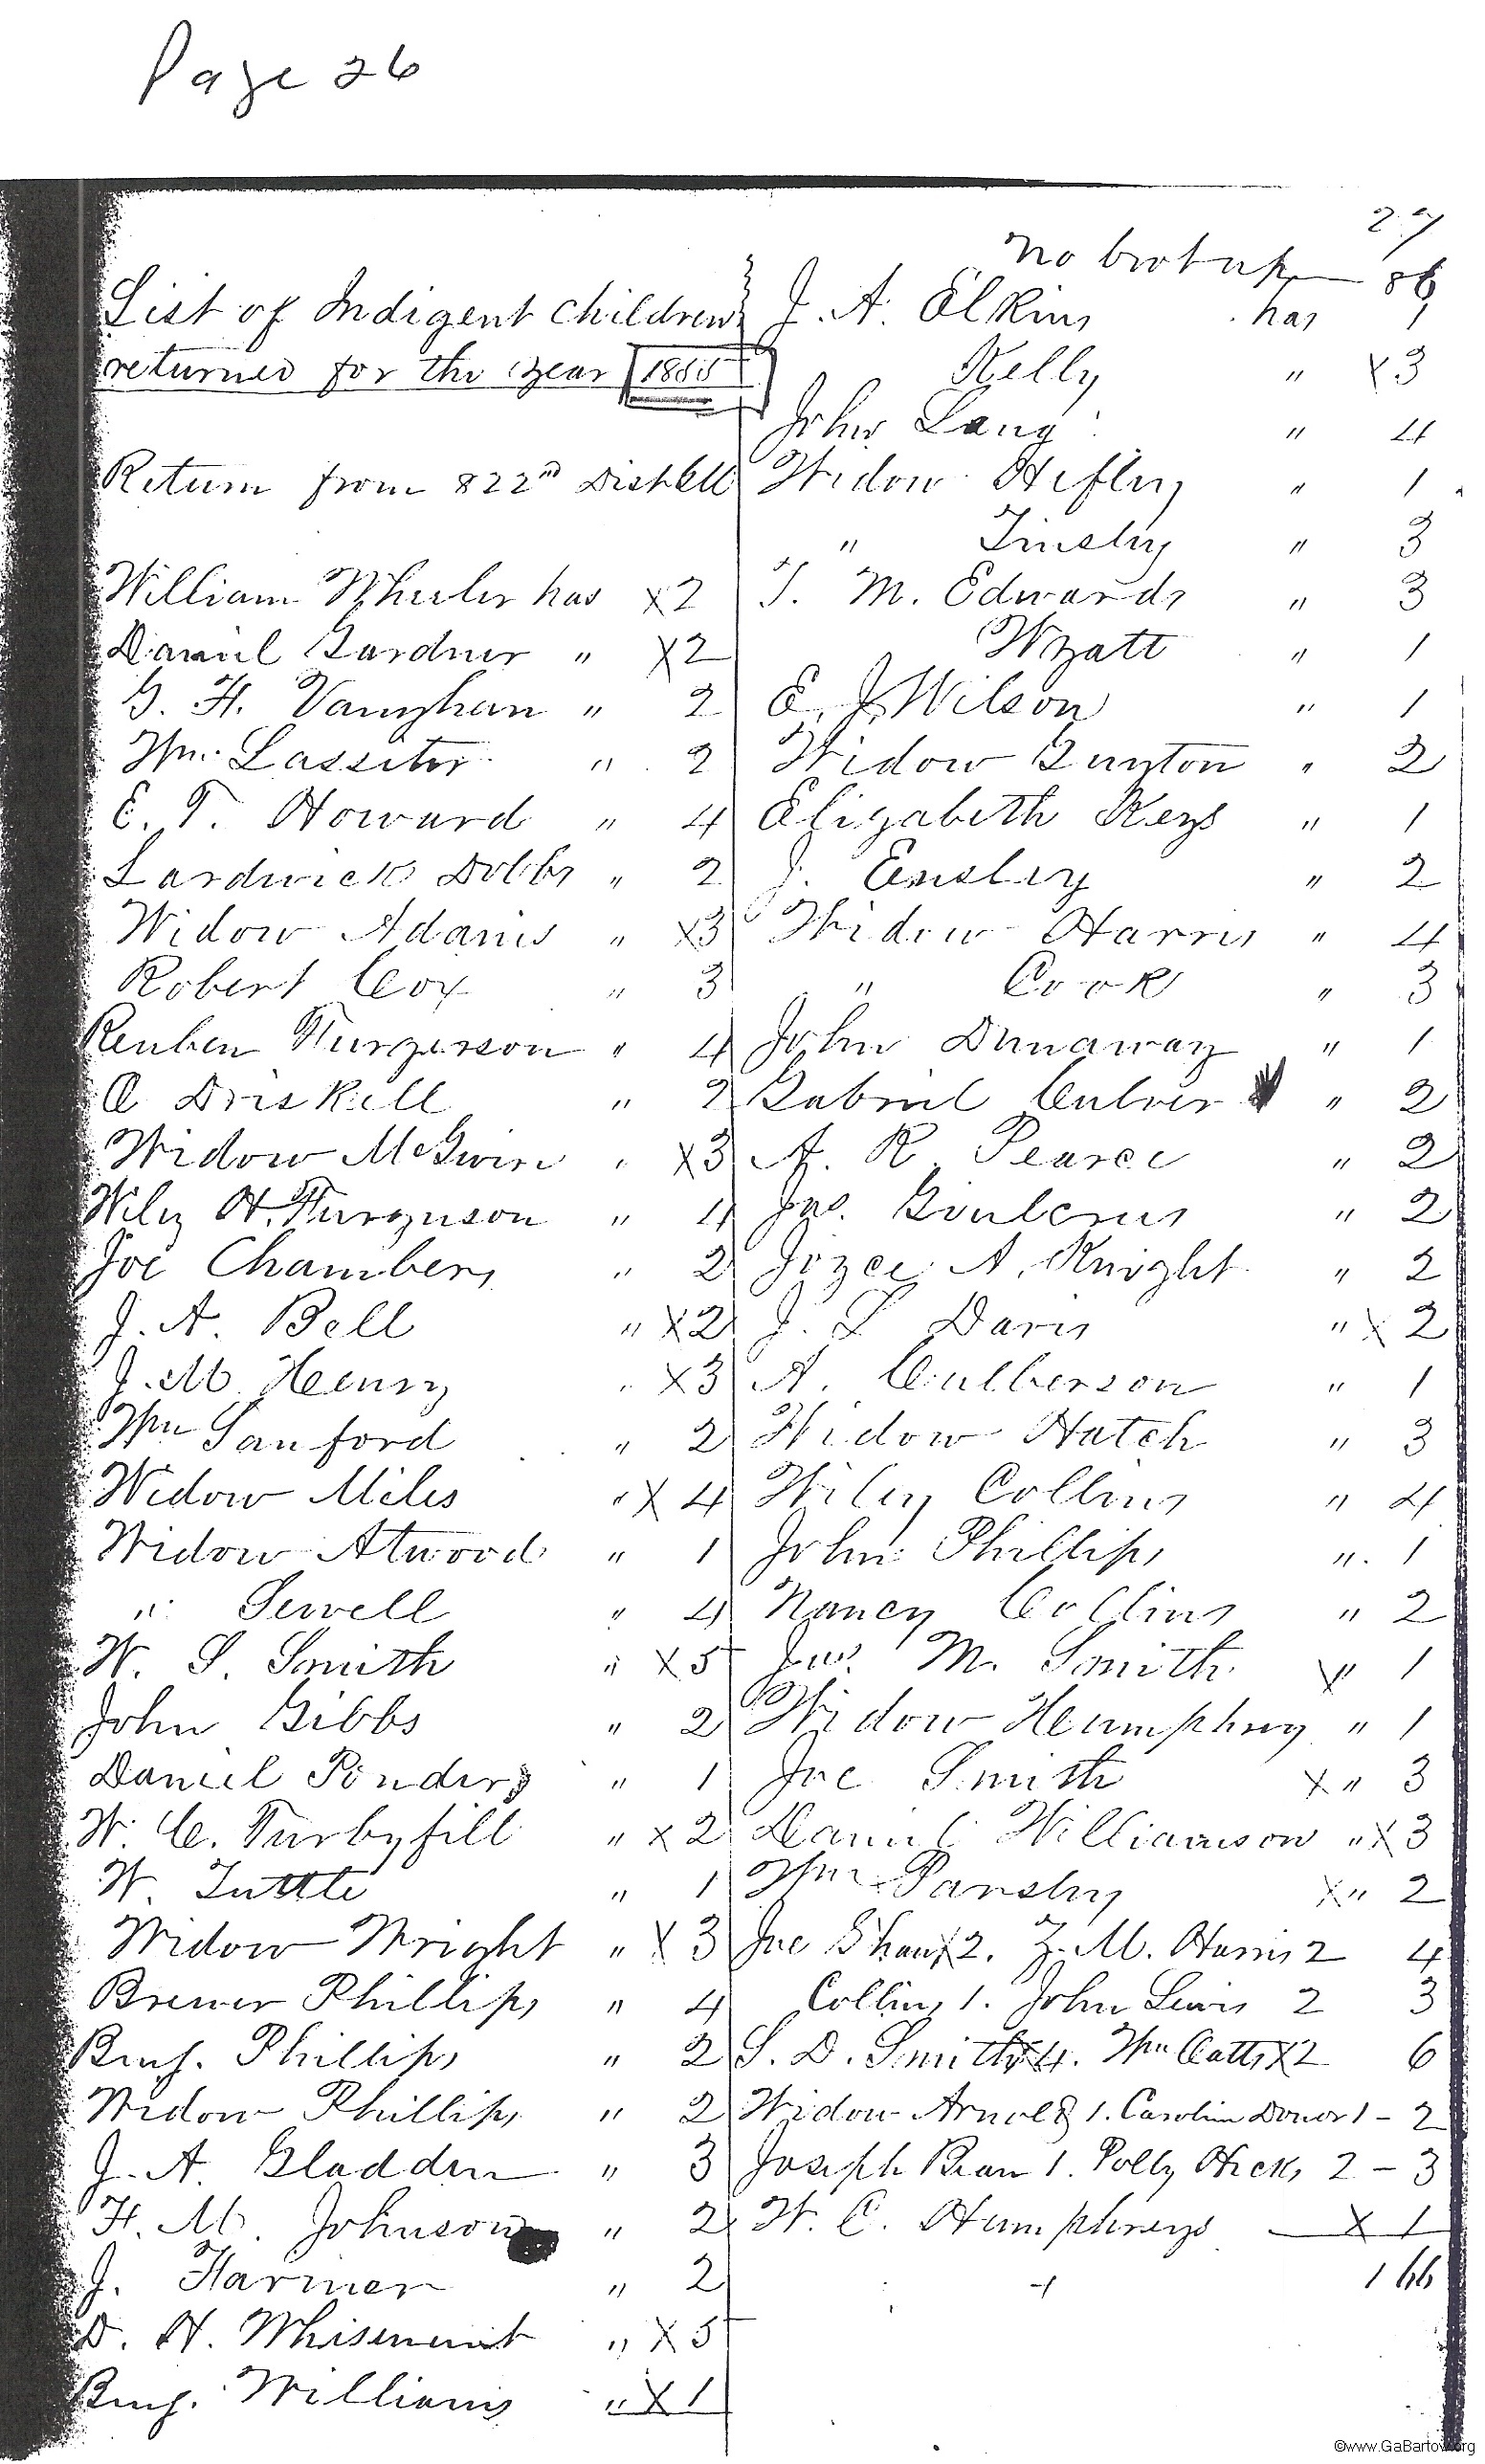 Page 26
27
List of Indigent Children
returned for the year 1855
Return from 822nd Dist
William Wheeler has X2
Daniel Gardner " X2
G. H. Vaughan " 2
Wm. Lassiter " 2
E. T. Howard " 4
Lardwick Dobbs " 2
Widow Adams " X3
Robert Cox " 3
Reuben Furgerson " 4
A Driskell " 2
Widow McGwin " X3
Wiley H. Furguson " 4
Joe Chambers " 2
J. A. Bell " X2
J. M. Henry " X3
Wm Sanford " 2
Widow Miles " X 4
Widow Atwood " 1
" Sewell " 4
W. S. Smith " X5
John Gibbs " 2
Daniel Ponders " 1
W. C. Turbyfill " X2
W. Tuttle " 1
Widow Wright " X 3
Brewer Phillips " 4
Benj. Phillips " 2
Widow Phillips " 2
J. A. Gladden " 3
H. M. Johnson " 2
J. Harmer " 2
D. H. Whisenunt " X5
Benj. Williams " X1
No brot up 86
J. A. Elkins has 1
Kelly " X3
John Lang " 4
Widow Hefley " 1
" Tinsley " 3
T. M. Edwards " 3
Wyatt " 1
E. J. Wilson " 1
Widow Gunton " 2
Elizabeth Keys " 1
J. Ensley " 2
Widow Harris " 4
" Cook " 3
John Dunaway " 1
Gabriel Culver " 2
A. R. Pearce " 2
Jas. " 2
A. Knight " 2
J. L. Davis " X 2
A. Culberson " 1
Widow Hatch " 3
Wiley Collins " 4
John Phillips " 1
Nancy Collins " 2
Jas. M. Smith X" 1
Widow Humphrey " 1
Joe Smith X " 3
Daniel Williamson " X3
Wm Pansley X " 2
Joe Shaw X2. Z. M. Harris 2 4
Collins 1. John Lewis 2 3
S. D. Smith X4. Wm Catts X2 6
Widow Arnold 1. Carolin Donor 1 - 2
Joseph Bean 1. Polly Hicks 2 - 3
W. C. Humphreys X 1
166
©www.GaBartow.org